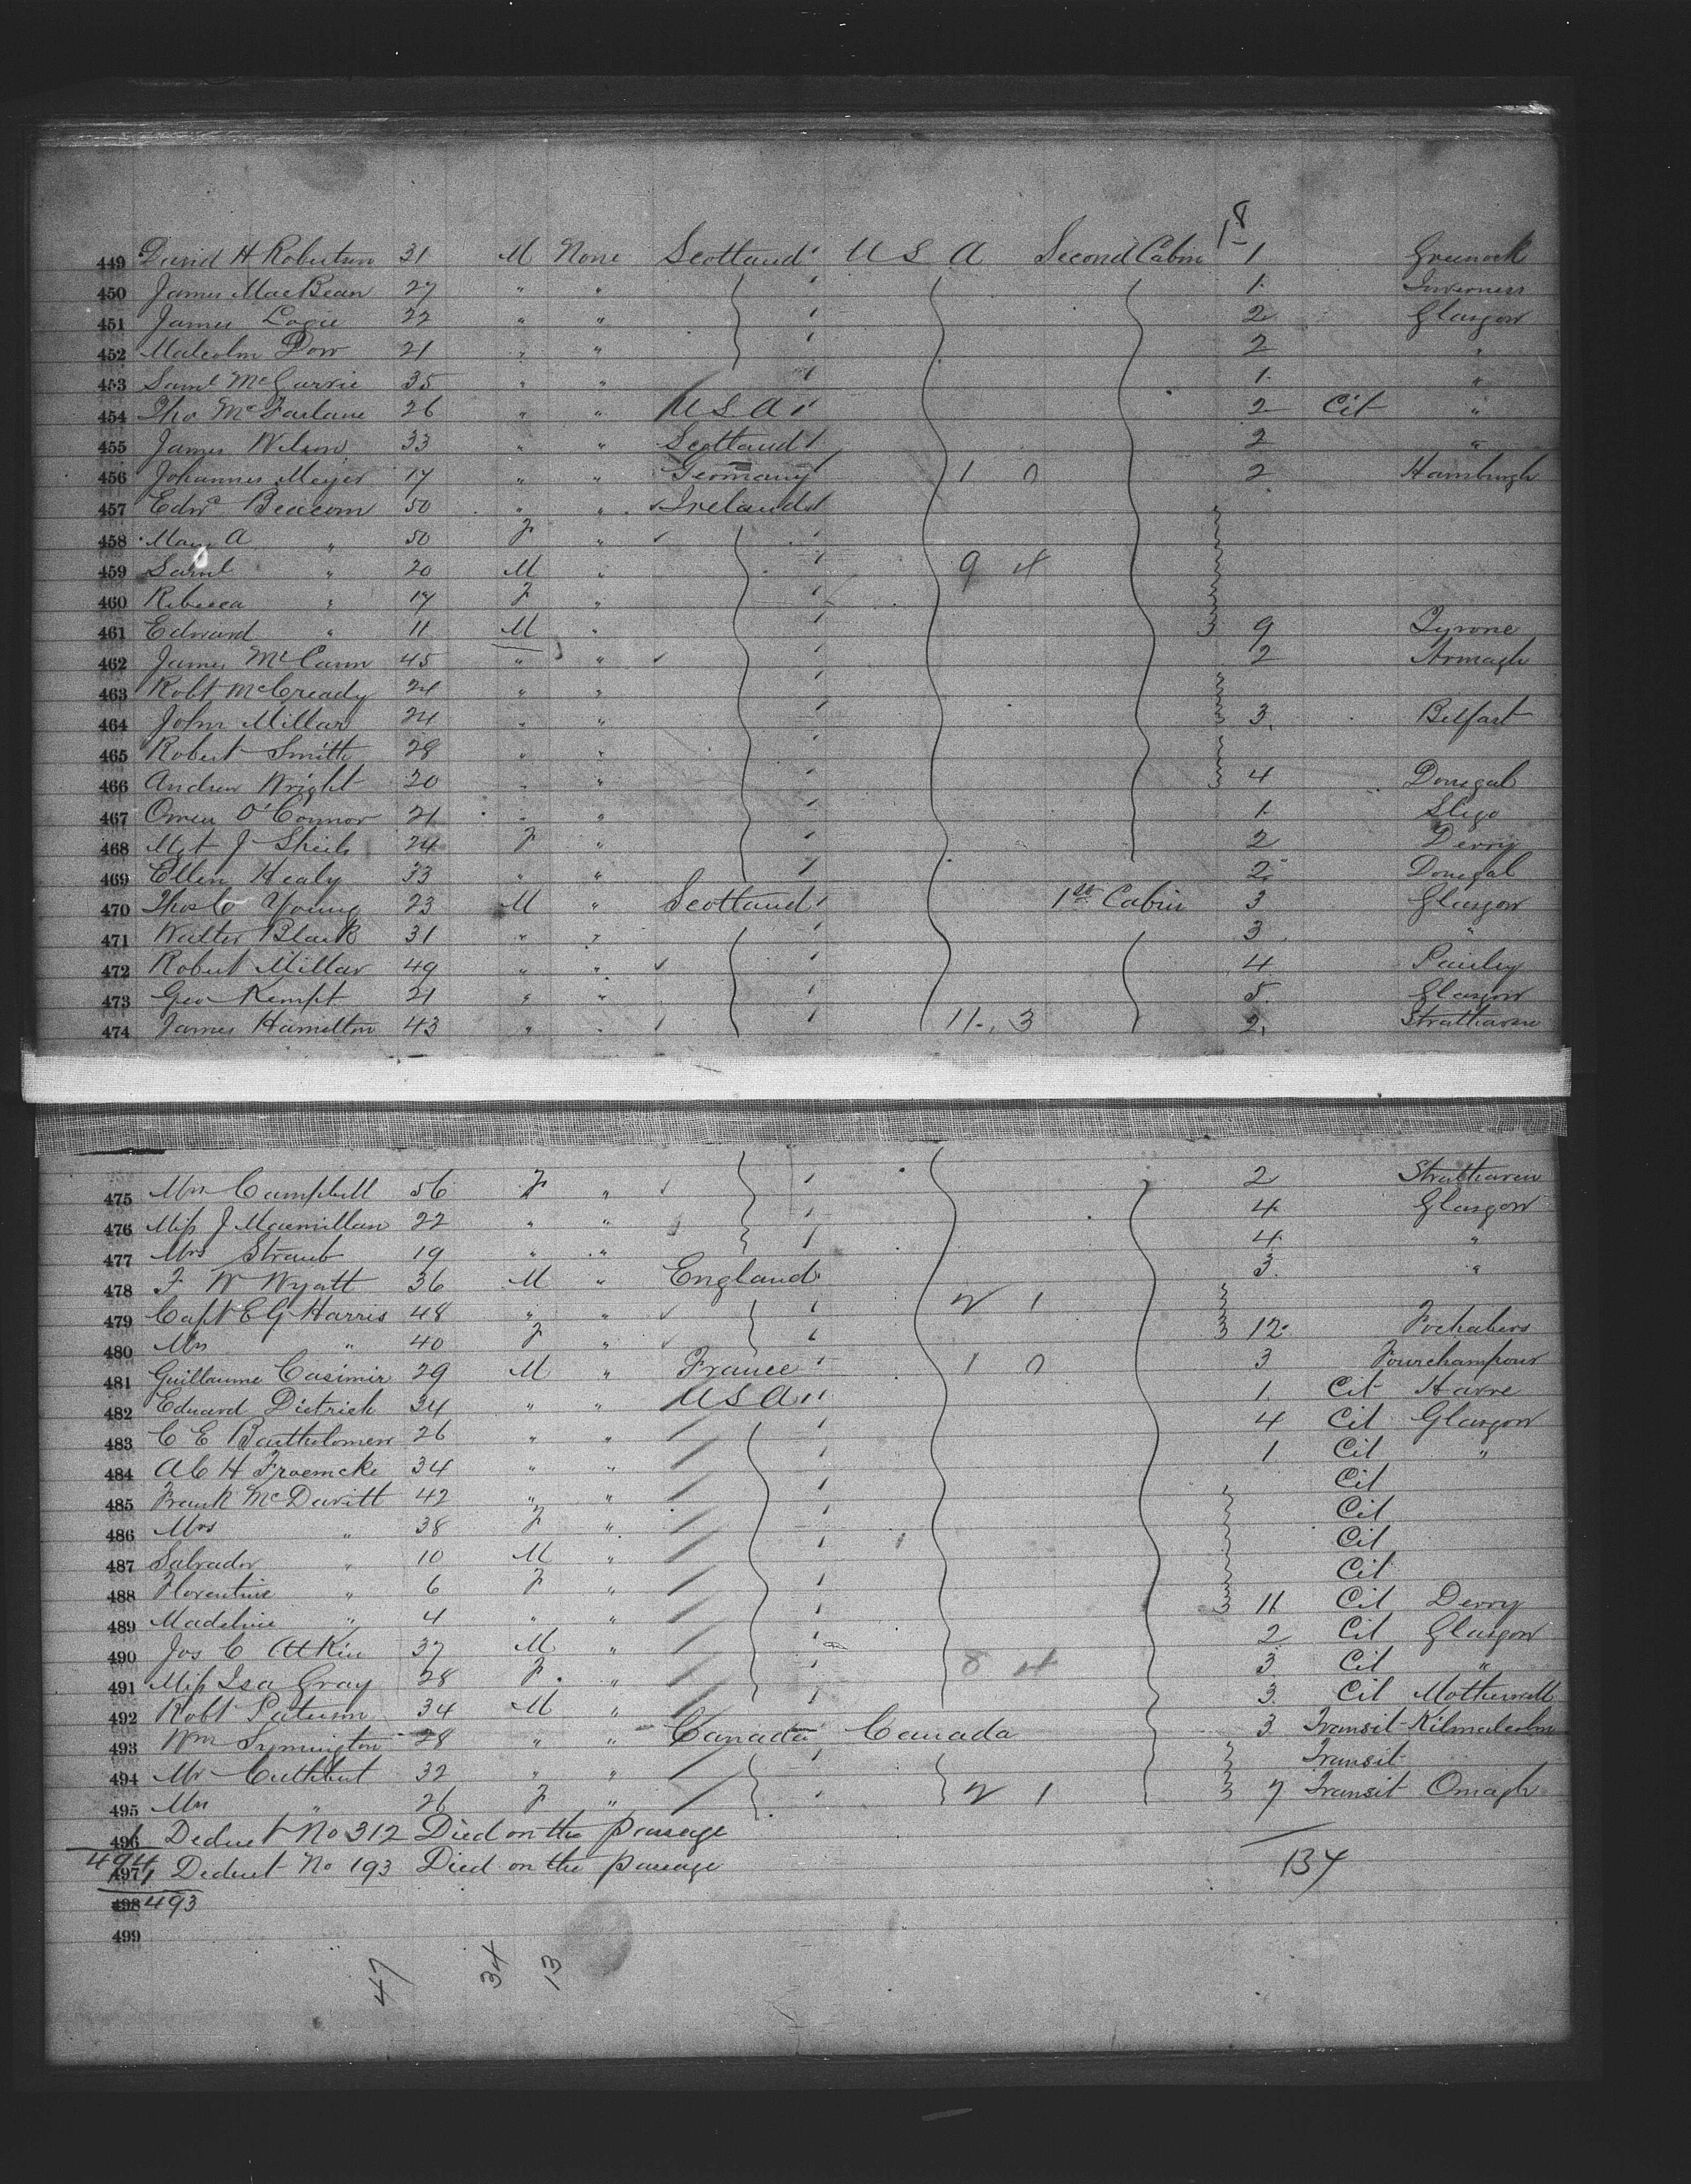 18
449 David H Robertson 31 M None Scotland U S A Second Cabin 1 Greenock
450 James MacBean 27 " " 1 Inverness
451 James Logie 22 " " 2 Glasgow
452 Malcolm Dow 21 " " 2 "
453 Saml McGarvie 35 " " 1 "
454 Tho McFarlane 26 " " U S A 2 Cit "
455 James Wilson 33 " " Scotland 2 "
456 Johannes Meyer 17 " " Germany 1 0 2 Hamburgh
457 Edwd Beacom 50 " " Ireland
458 Mary A " 50 F "
459 Saml " 20 M " 9 4
460 Rebecca " 17 F "
461 Edward " 11 M " 9 Tyrone
462 James McCann 45 " " 2 Armagh
463 Robt McCready 24 " "
464 John Millar 24 " " 3 Belfast
465 Robert Smith 28 " "
466 Andrew Wright 20 " " 4 Donegal
467 Owen O'Connor 21 " " 1 Sligo
468 Mgt J Sheils 24 F " 2 Derry
469 Ellen Healy 33 " " 2 Donegal
470 Thos C Young 23 M " Scotland 1st Cabin 3 Glasgow
471 Walter Black 31 " " 3 "
472 Robert Millar 49 " " 4 Paisley
473 Geo Kempt 21 " " 5 Glasgow
474 James Hamilton 43 " " 11 3 2 Strathaven
475 Mrs Campbell 56 F " 2 Strathaven
476 Miss J Macmillan 22 " " 4 Glasgow
477 Mrs Straub 19 " " 4 "
478 F W Wyatt 36 M " England 3 "
479 Capt E G Harris 48 " " 2 1
480 Mrs " 40 F " 12 Fochabers
481 Guillaume Casimir 29 M " France 1 0 3 Fourchampour
482 Eduard Dietrich 34 " " U S A 1 Cit Havre
483 C E Bartholomew 26 " " 4 Cit Glasgow
484 A C H Fraemcke 34 " " 1 Cit "
485 Frank McDavitt 42 " " Cit
486 Mrs " 38 F " Cit
487 Salvador " 10 M " Cit
488 Florentine " 6 F " Cit
489 Madeline " 4 " " 11 Cit Derry
490 Jos C Atkin 37 M " 2 Cit Glasgow
491 Miss Isa Gray 28 F " 8 4 3 Cit "
492 Robt Paterson 34 M " 3 Cit Motherwell
493 Wm Symington 28 " " Canada Canada 3 Transit Kilmalcolm
494 Mr Cuthbert 32 " " Transit
495 Mrs " 26 F " 2 1 7 Transit Omagh
496 1 Deduct No 312 Died on the passage
494
497 1 Deduct No 193 Died on the passage 137
498 493
499
47 34 13